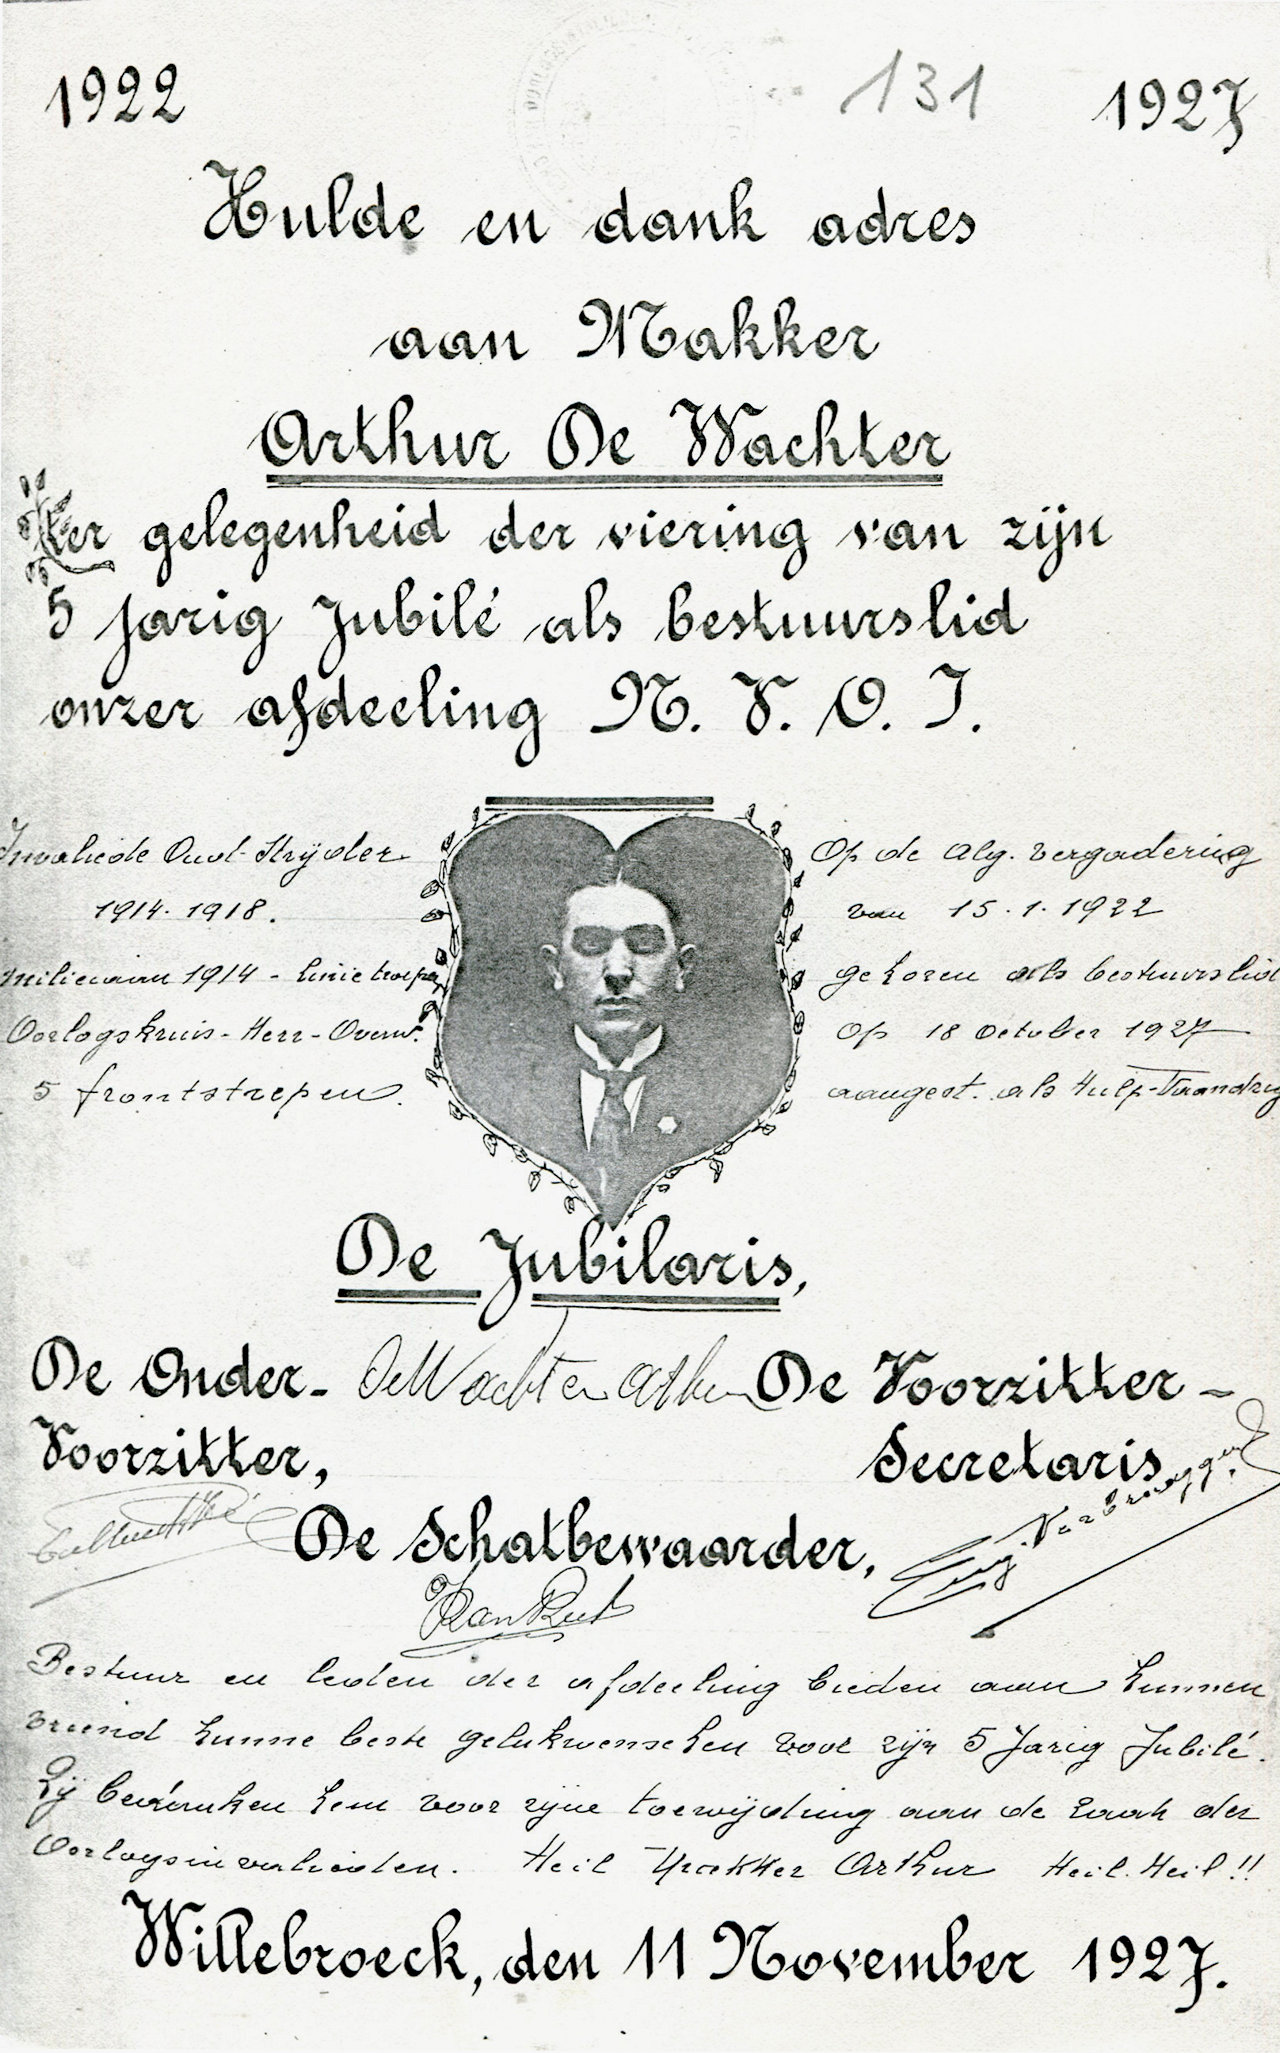 1922 131 1927
Hulde en dank adres
aan Makker
Arthur De Wachter
ter gelegenheid der viering van zijn
5 jarig Jubilé als bestuurslid
onzer afdeeling N. V. O. I.
Invaliede Oud-Strijder
1914-1918.
milicaan 1914 - linie troepen
Oorlogskruis - Herr - Overw.
5 frontstrepen.
Op de Alg. vergadering
van 15.1.1922
gekozen als bestuurslid
op 18 october 1927
aangest. als Hulp-Vaandrig
De Jubilaris,
De Onder-
Voorzitter,
De Wachter Arthur
De Voorzitter-
Secretaris
De Schatbewaarder,
Bestuur en leden der afdeeling bieden aan hunnen
vriend hunne beste gelukwenschen voor zijn 5 Jarig Jubilé.
Zij bedanken hem voor zijne toewijding aan de zaak der
Oorlogsinvalieden. Heil Makker Arthur Heil. Heil!!
Willebroeck, den 11 November 1927.